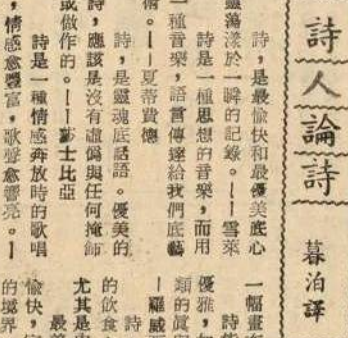 詩人論詩
暮泊譯
詩，是最愉快和最優美底心
靈蕩漾於一瞬的記錄。——雪萊
詩是一種思想的音樂，而用
一種音樂，語言傳達給我們底藝
術。——夏蒂費德
詩，是靈魂底話語。優美的
詩，應該是沒有虛僞與任何掩飾
或做作的。——莎士比亞
詩是一種情感奔放時的歌唱
，情感愈豐富，歌聲愈響亮。——
一幅畫
詩
優雅，
類的眞
—羅威
詩
的飲食
尤其是
最
愉快，
的境界